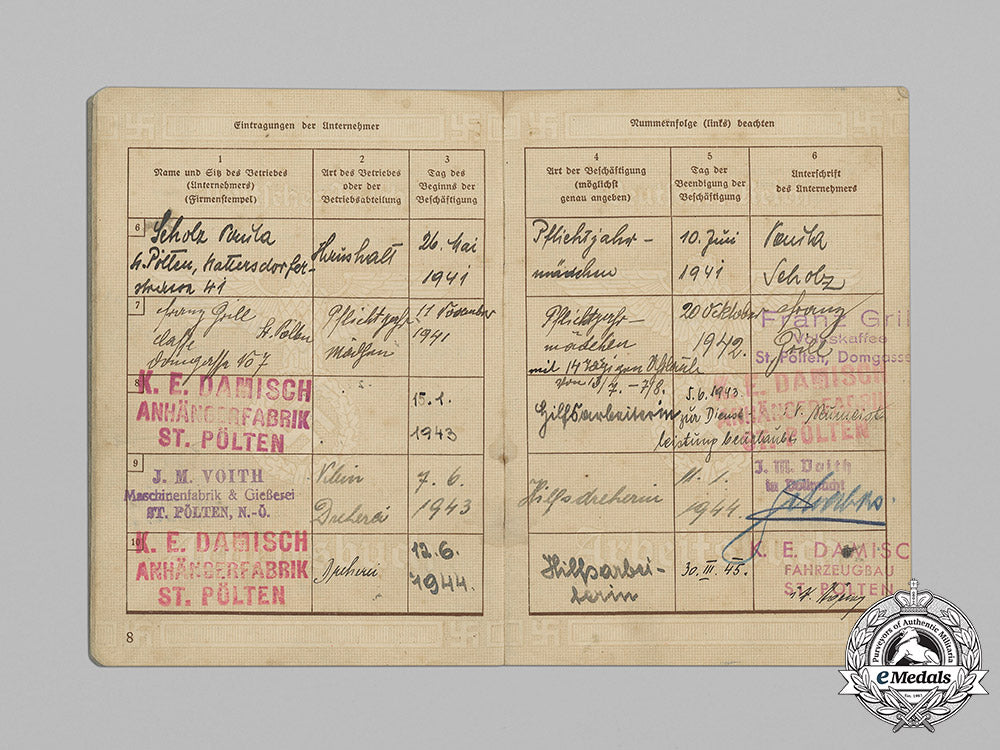 Eintragungen der Unternehmer
1
Name und Sitz des Betriebes
(Unternehmers)
(Firmenstempel)
2
Art des Betriebes
oder der
Betriebsabteilung
3
Tag des
Beginns der
Beschäftigung
Nummernfolge (links) beachten
4
Art der Beschäftigung
(möglichst
genau angeben)
5
Tag der
Beendigung der
Beschäftigung
6
Unterschrift
des Unternehmers
6
Scholz
St. Pölten,
41
Haushalt
26. Mai
1941
Pflichtjahr-
mädchen
10. Juni
1941
Scholz
7
Franz Grill
St. Pölten
Domgasse No 7
Pflichtjahr
Mädchen
11 November
1941
Pflichtjahr-
mädchen
mit 14
von
20 Oktober
1942.
Franz
Grill
Franz Gril
Volkskaffee
St. Pölten, Domgasse
8
K. E. DAMISCH
ANHÄNGERFABRIK
ST. PÖLTEN
15.1.
1943
Hilfsarbeiterin
5.6.1943
zur Dienst
leistung beurlaubt
K. E. DAMISCH
ANHÄNGERFABRIK
ST. PÖLTEN
9
J. M. VOITH
Maschinenfabrik & Gießerei
ST. PÖLTEN, N.-Ö.
Klein
Dreherei
7.6.
1943
Hilfsdreherin
11.
1944.
J. M. Voith
in Vollmacht
10
K. E. DAMISCH
ANHÄNGERFABRIK
ST. PÖLTEN
Dreherei
12.6.
1944.
Hilfsarbei-
terin
30. III. 45.
K. E. DAMISC
FAHRZEUGBAU
ST. PÖLTEN
8
Purveyors of Authentic Militaria
eMedals